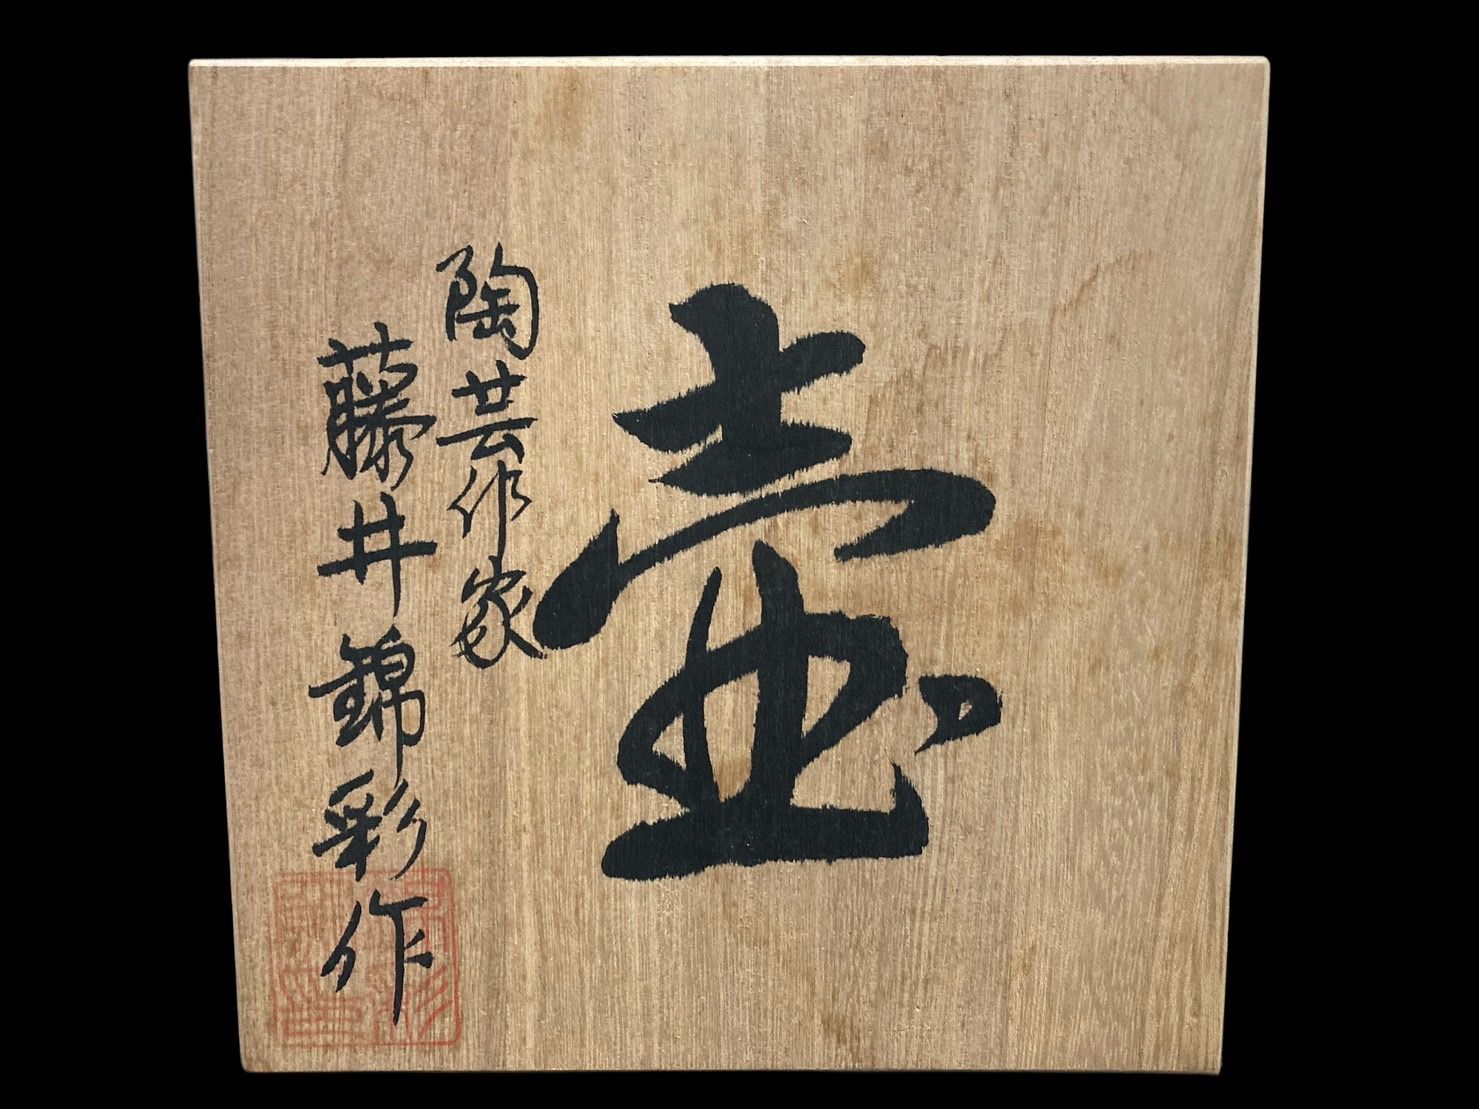 壷
陶芸作家
藤井錦彩作